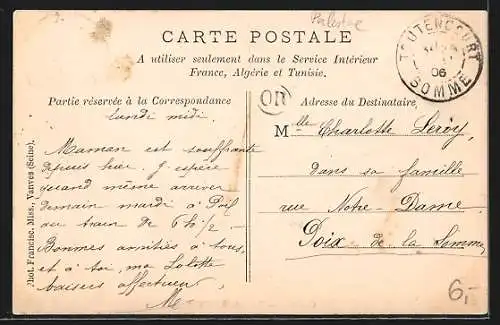 Palestine
CARTE POSTALE
A utiliser seulement dans le Service Intérieur
France, Algérie et Tunisie.
TOUTENCOURT
06
SOMME
OR
Partie réservée à la Correspondance
Adresse du Destinataire,
lundi midi.
Maman est souffrante
depuis hier. J'espère
quand même arriver
demain mardi à
au train de 6h 1/2 -
Bonnes amitiés à tous,
et à toi, ma Lolotte
baisers affectueux
Mlle Charlotte Leroy,
dans sa famille
rue Notre-Dame
Poix de la Somme
Phot. Francisc. Miss., Vanves (Seine).
6,-